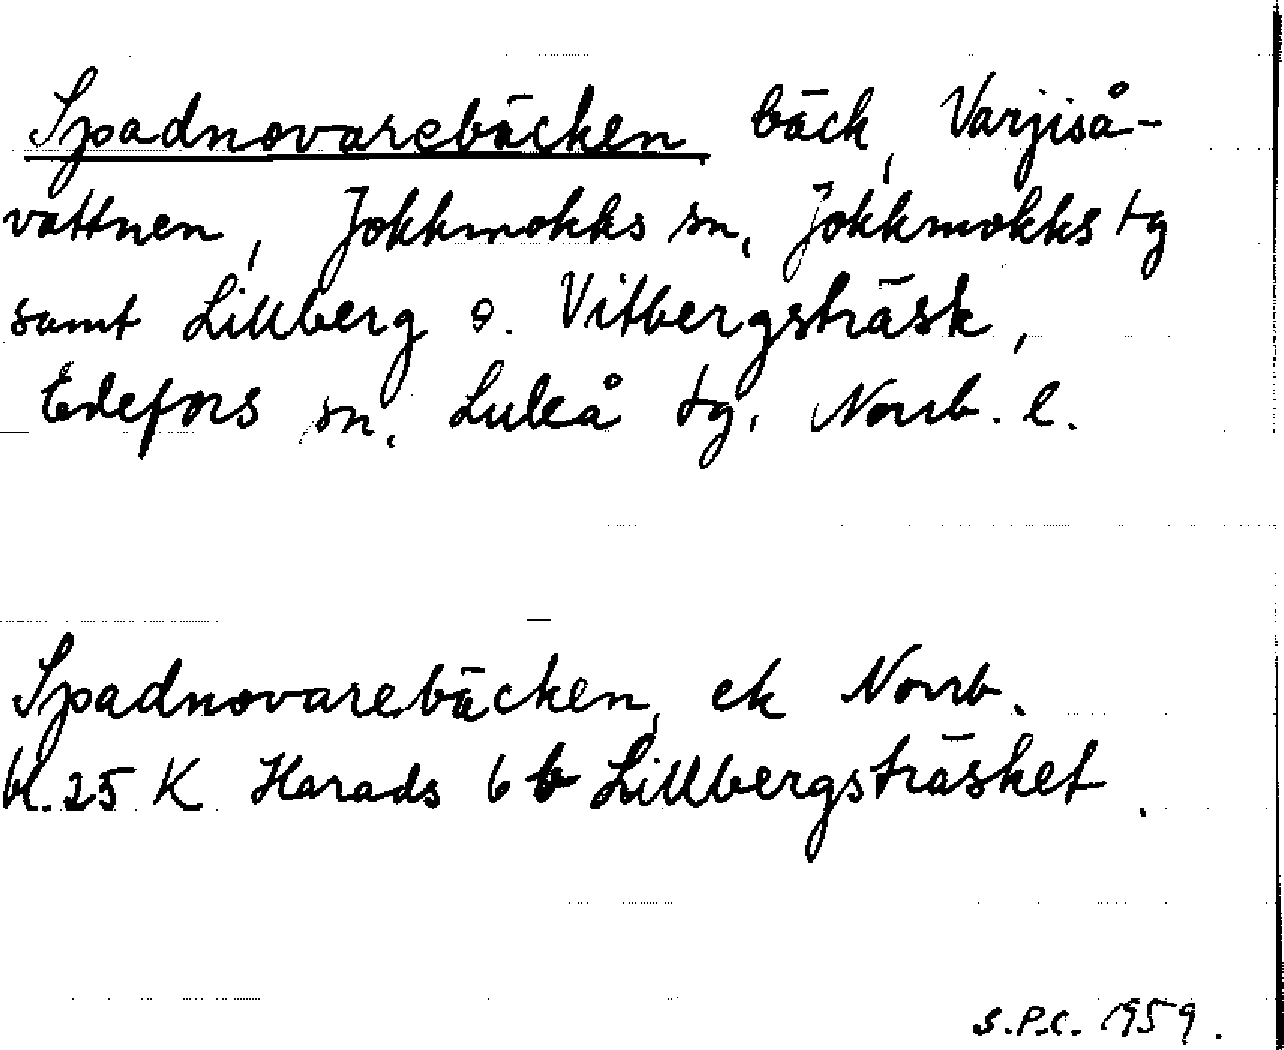 Spadnovarebäcken, bäck, Varjiså-
vattnen, Jokkmokks sn, Jokkmokks tg
samt Lillberg o. Vitbergsträsk,
Edefors sn, Luleå tg. Norrb. l.
Spadnovarebäcken, ek Norrb.
bl. 25 K Harads 6 b Lillbergsträsket.
S.P.C. 1959.